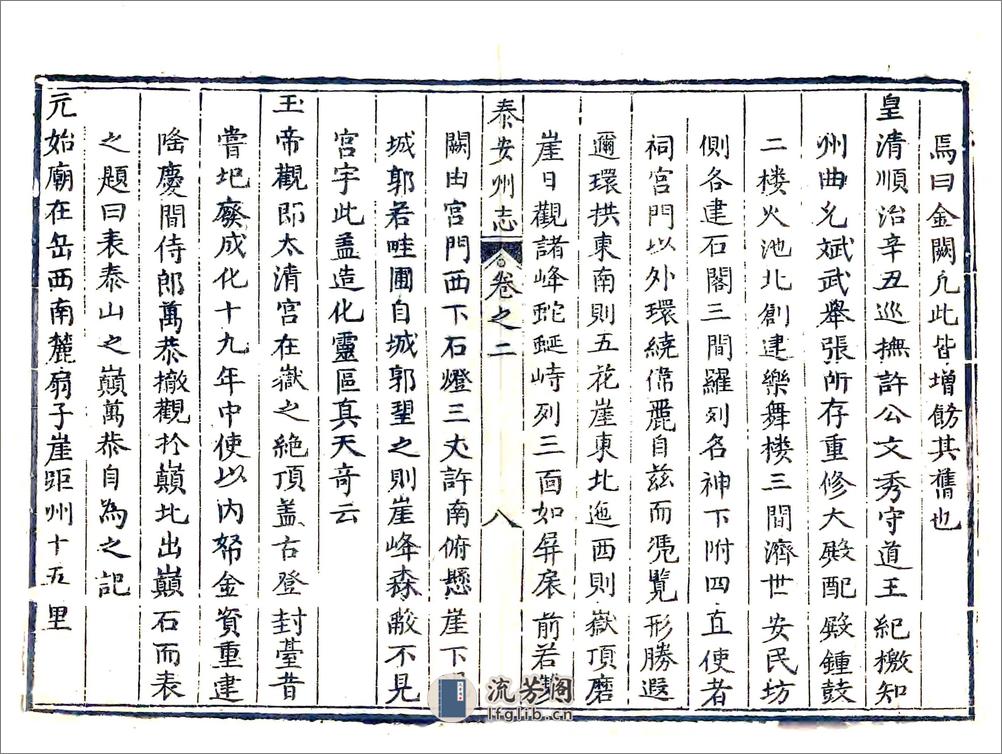 焉曰金闕凢此皆增餙其舊也
皇清順治辛丑巡撫許公文秀守道王紀檄知
州曲允斌武舉張所存重修大殿配殿鍾鼓
二楼火池北創建樂舞楼三間濟世安民坊
側各建石閣三間羅列名神下附四直使者
祠宫門以外環繞偉麗自兹而凴覽形勝遐
邇環拱東南則五花崖東北迤西則嶽頂磨
崖日觀諸峰蛇蜒峙列三面如屏扆前若
泰安州志 卷之二 八
闕由宫門西下石磴三丈許南俯懸崖下
城郭若畦圃自城郭望之則崖峰森敵不見
宫宇此盖造化靈區真天竒云
玉帝觀即太清宫在嶽之絶頂盖古登封臺昔
嘗圯廢成化十九年中使以内帑金資重建
隆慶間侍郎萬恭撤觀扵巔北出巔石而表
之題曰表泰山之巔萬恭自為之記
元始廟在岳西南麓扇子崖距州十五里
流芳阁
lfglib.cn